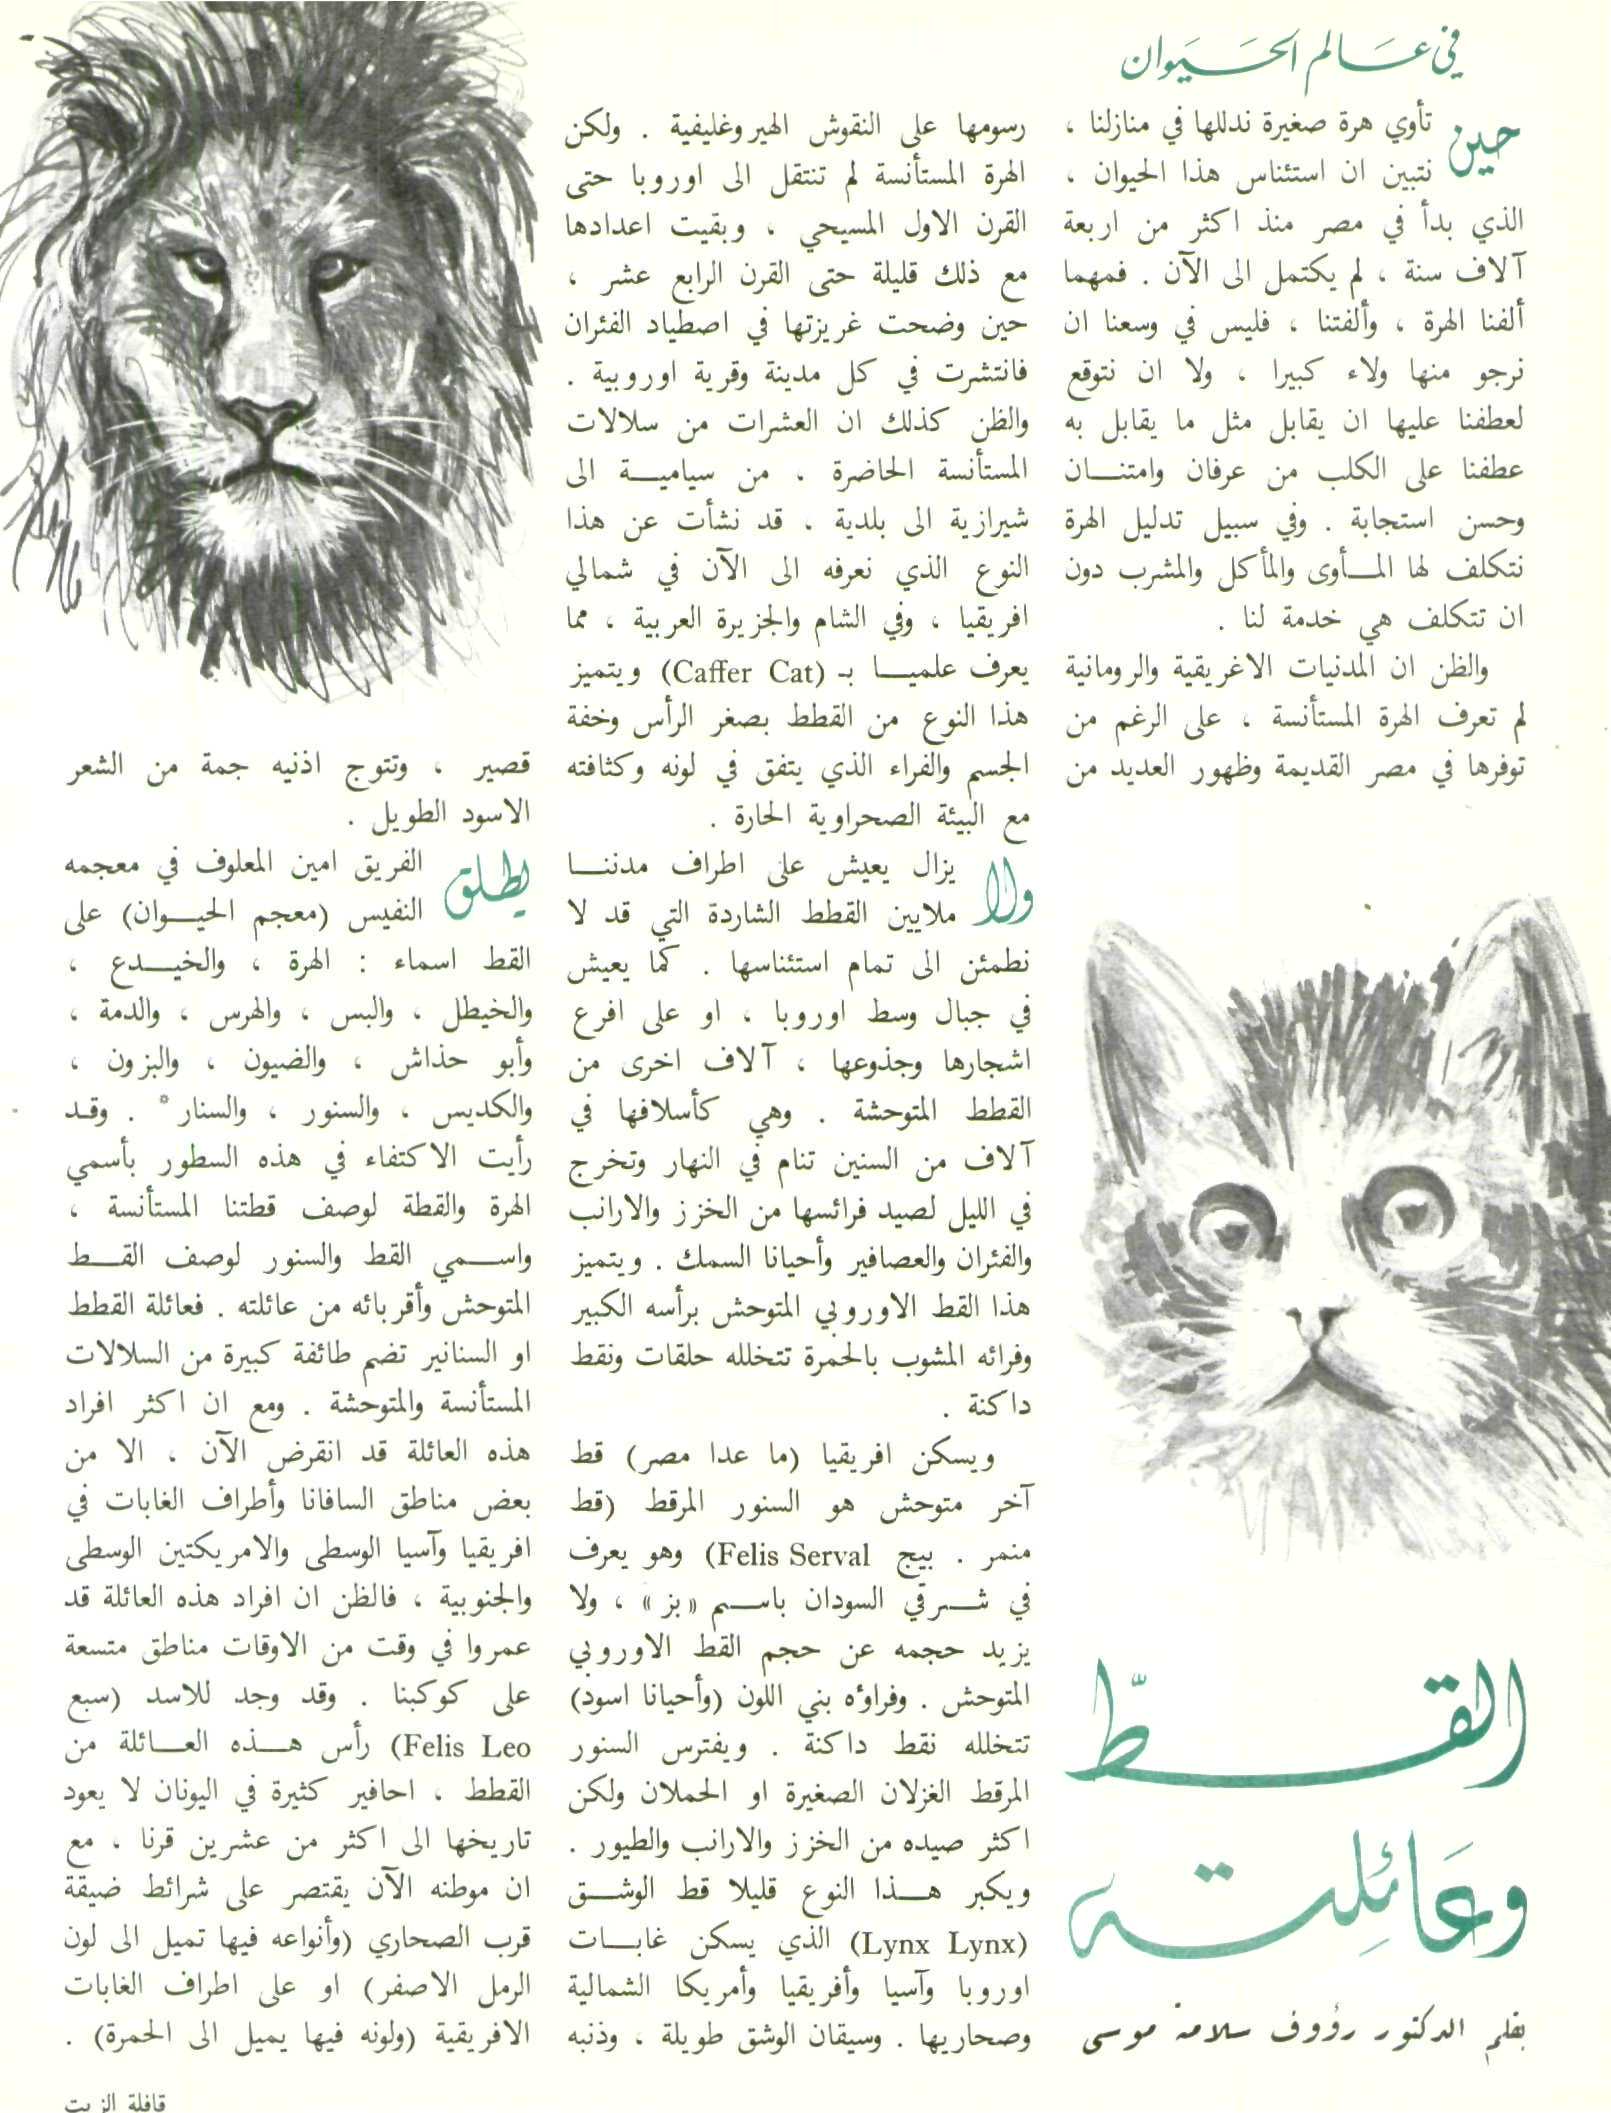 في عالم الحيوان
حين تأوي هرة صغيرة ندللها في منازلنا ،
نتبين ان استئناس هذا الحيوان ،
الذي بدأ في مصر منذ اكثر من اربعة
آلاف سنة ، لم يكتمل الى الآن . فمهما
ألفنا الهرة ، وألفتنا ، فليس في وسعنا ان
نرجو منها ولاء كبيرا ، ولا ان نتوقع
لعطفنا عليها ان يقابل مثل ما يقابل به
عطفنا على الكلب من عرفان وامتنان
وحسن استجابة . وفي سبيل تدليل الهرة
نتكلف لها المأوى والمأكل والمشرب دون
ان تتكلف هي خدمة لنا .
والظن ان المدنيات الاغريقية والرومانية
لم تعرف الهرة المستأنسة ، على الرغم من
توفرها في مصر القديمة وظهور العديد من
القط
وعائلته
بقلم الدكتور رؤوف سلامة موسى
رسومها على النقوش الهيروغليفية . ولكن
الهرة المستأنسة لم تنتقل الى اوروبا حتى
القرن الاول المسيحي ، وبقيت اعدادها
مع ذلك قليلة حتى القرن الرابع عشر ،
حين وضحت غريزتها في اصطياد الفئران
فانتشرت في كل مدينة وقرية اوروبية .
والظن كذلك ان العشرات من سلالات
المستأنسة الحاضرة ، من سيامية الى
شيرازية الى بلدية ، قد نشأت عن هذا
النوع الذي نعرفه الى الآن في شمالي
افريقيا ، وفي الشام والجزيرة العربية ، مما
يعرف علميا بـ (Caffer Cat) ويتميز
هذا النوع من القطط بصغر الرأس وخفة
الجسم والفراء الذي يتفق في لونه وكثافته
مع البيئة الصحراوية الحارة .
ولا يزال يعيش على اطراف مدننا
ملايين القطط الشاردة التي قد لا
نطمئن الى تمام استئناسها . كما يعيش
في جبال وسط اوروبا ، او على افرع
اشجارها وجذوعها ، آلاف اخرى من
القطط المتوحشة . وهي كأسلافها في
آلاف من السنين تنام في النهار وتخرج
في الليل لصيد فرائسها من الخزز والارانب
والفئران والعصافير وأحيانا السمك . ويتميز
هذا القط الاوروبي المتوحش برأسه الكبير
وفرائه المشوب بالحمرة تتخلله حلقات ونقط
داكنة .
ويسكن افريقيا (ما عدا مصر) قط
آخر متوحش هو السنور المرقط (قط
منمر . بيج Felis Serval) وهو يعرف
في شرقي السودان باسم «بز» ، ولا
يزيد حجمه عن حجم القط الاوروبي
المتوحش . وفراؤه بني اللون (وأحيانا اسود)
تتخلله نقط داكنة . ويفترس السنور
المرقط الغزلان الصغيرة او الحملان ولكن
اكثر صيده من الخزز والارانب والطيور .
ويكبر هذا النوع قليلا قط الوشق
(Lynx Lynx) الذي يسكن غابات
اوروبا وآسيا وأفريقيا وأمريكا الشمالية
وصحاريها . وسيقان الوشق طويلة ، وذنبه
قصير ، وتتوج اذنيه جمة من الشعر
الاسود الطويل .
يطلق الفريق امين المعلوف في معجمه
النفيس (معجم الحيوان) على
القط اسماء : الهرة ، والخيدع ،
والخيطل ، والبس ، والهرس ، والدمة ،
وأبو حذاش ، والضيون ، والبزون ،
والكديس ، والسنور ، والسنار* . وقد
رأيت الاكتفاء في هذه السطور بأسمي
الهرة والقطة لوصف قطتنا المستأنسة ،
واسمي القط والسنور لوصف القط
المتوحش وأقربائه من عائلته . فعائلة القطط
او السنانير تضم طائفة كبيرة من السلالات
المستأنسة والمتوحشة . ومع ان اكثر افراد
هذه العائلة قد انقرض الآن ، الا من
بعض مناطق السافانا وأطراف الغابات في
افريقيا وآسيا الوسطى والامريكتين الوسطى
والجنوبية ، فالظن ان افراد هذه العائلة قد
عمروا في وقت من الاوقات مناطق متسعة
على كوكبنا . وقد وجد للاسد (سبع
Felis Leo) رأس هذه العائلة من
القطط ، احافير كثيرة في اليونان لا يعود
تاريخها الى اكثر من عشرين قرنا ، مع
ان موطنه الآن يقتصر على شرائط ضيقة
قرب الصحاري (وأنواعه فيها تميل الى لون
الرمل الاصفر) او على اطراف الغابات
الافريقية (ولونه فيها يميل الى الحمرة) .
قافلة الزيت